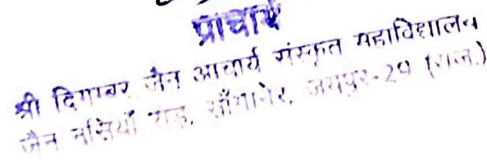 प्राचार्य
श्री दिगम्बर जैन आचार्य संस्कृत महाविद्यालय
जैन नसियाँ रोड, साँगानेर, जयपुर-29 (राज.)